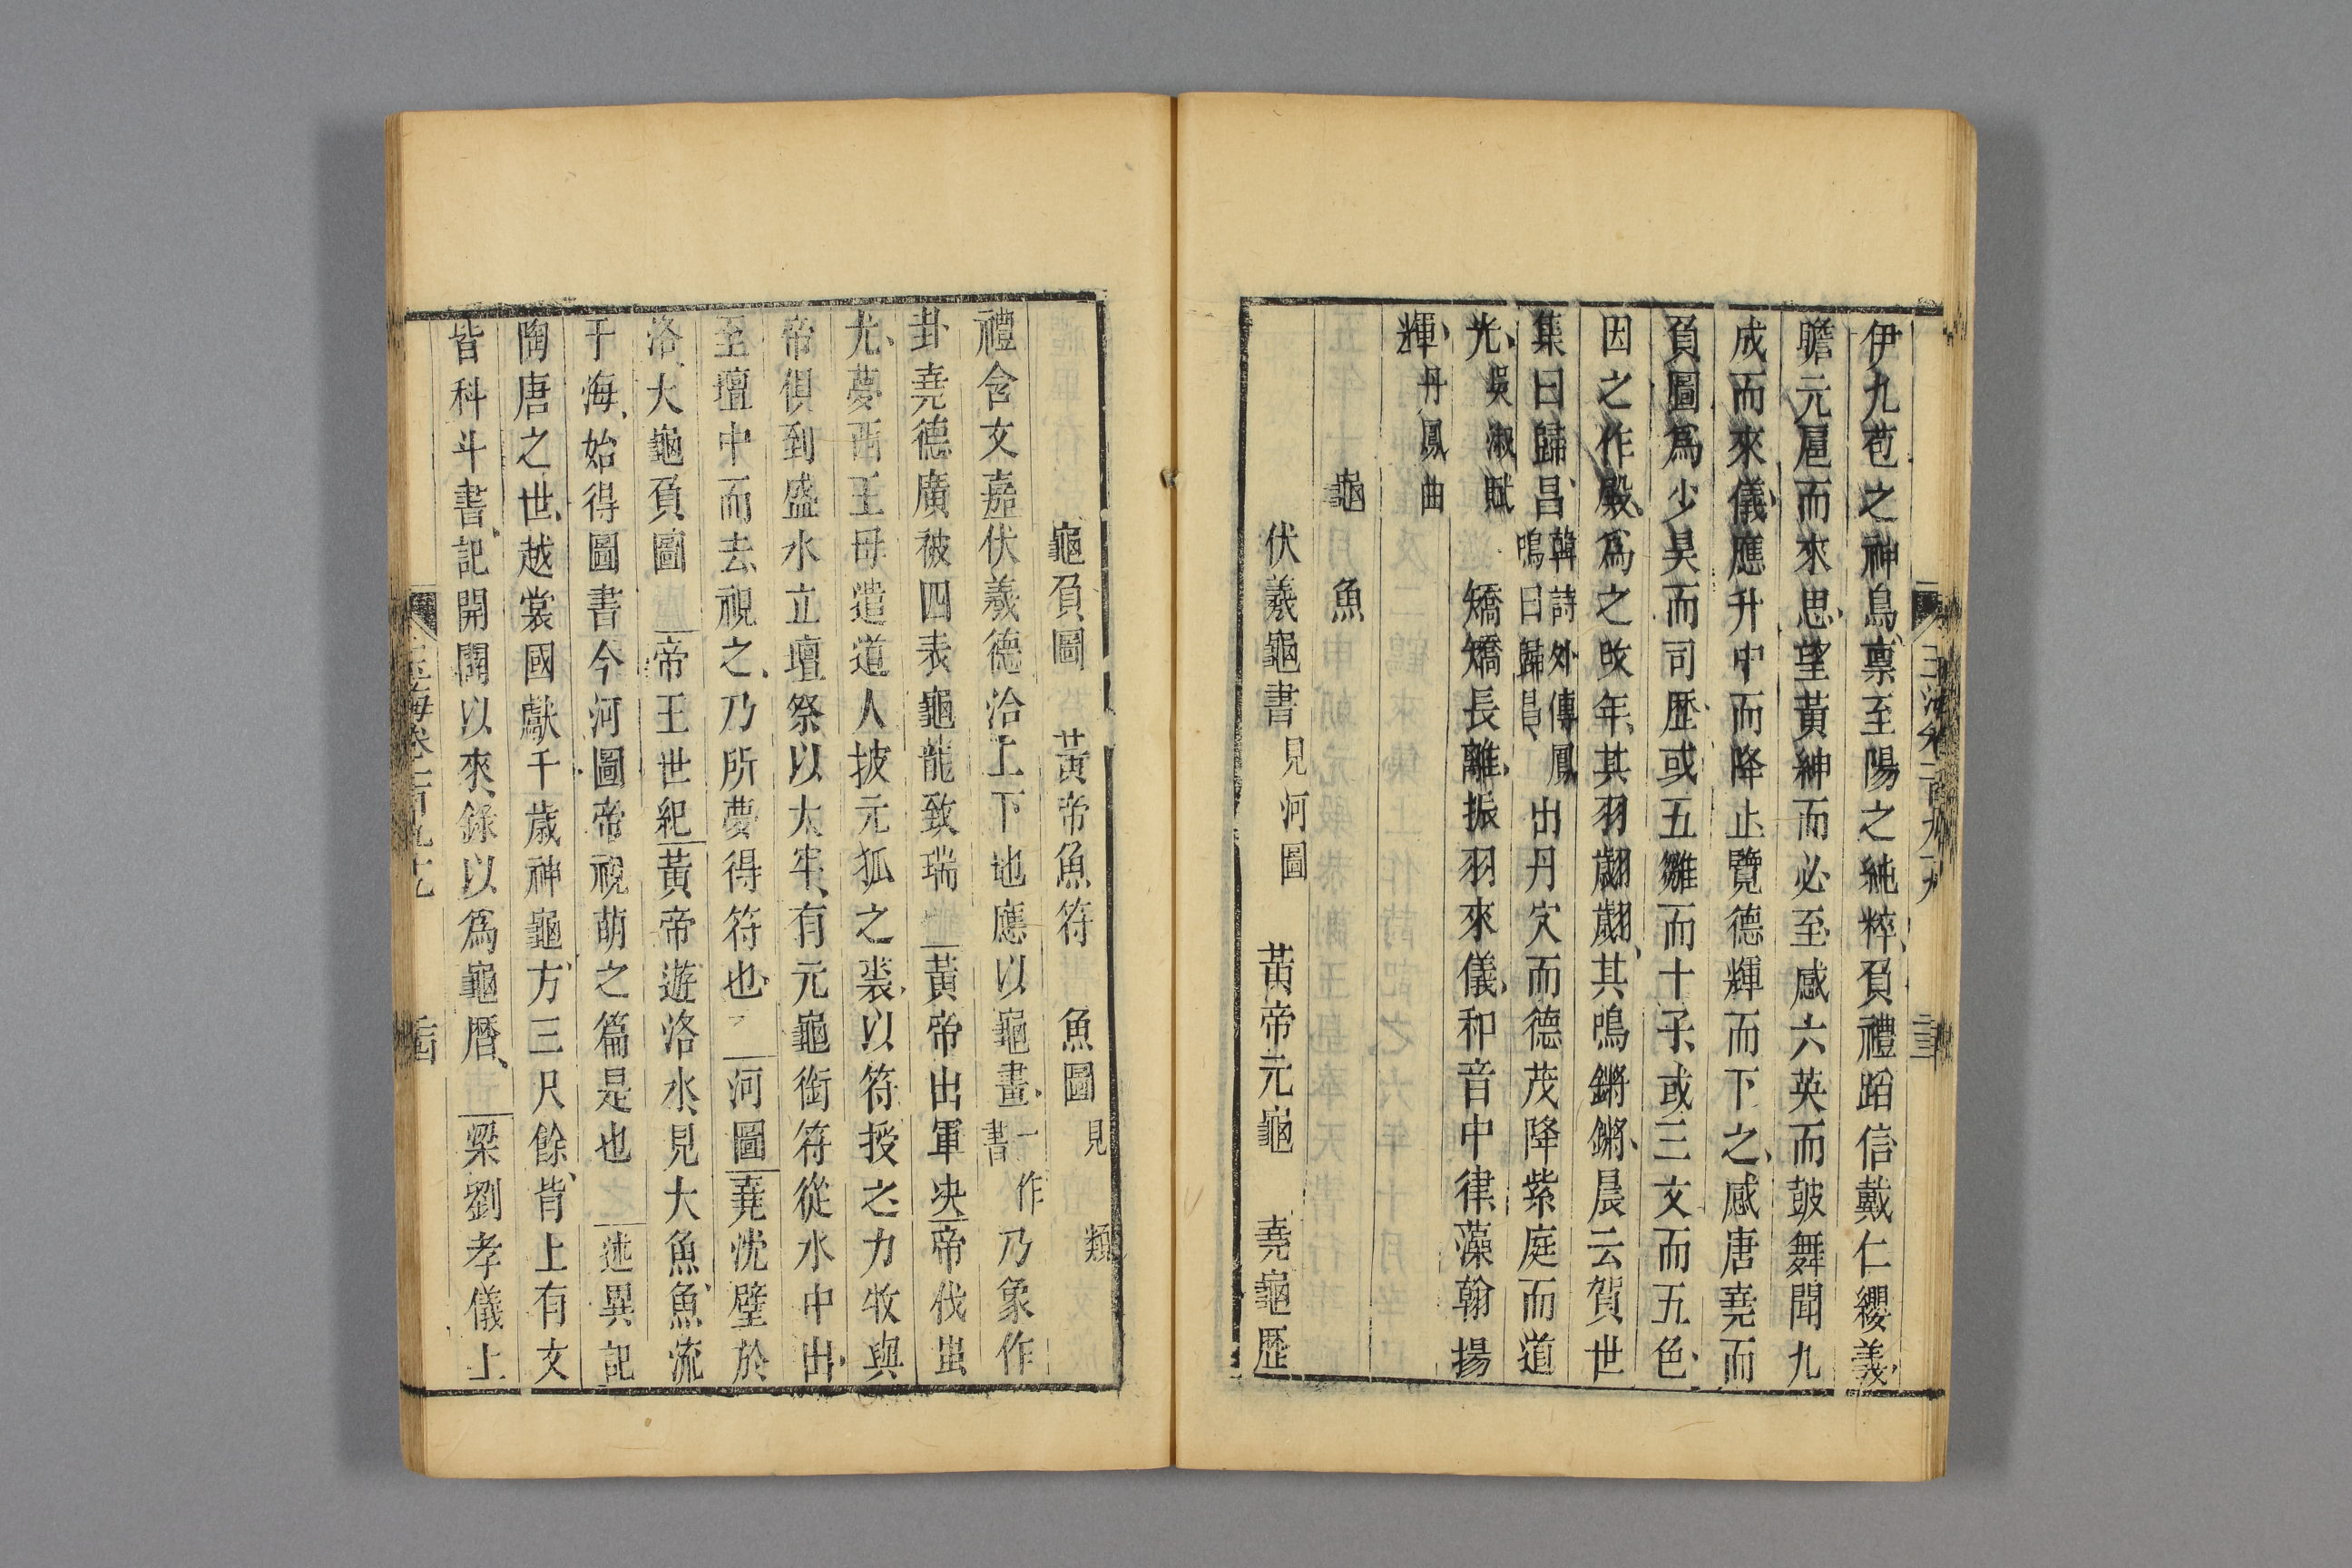 伊九苞之神鳥禀至陽之純粹負禮蹈信戴仁纓義
瞻元扈而來思望黃紳而必至感六英而鼓舞聞九
成而來儀應升中而降止覽德輝而下之感唐堯而
負圖爲少昊而司歷或五雛而十子或三文而五色
因之作殿爲之改年其羽翽翽其鳴鏘鏘晨云賀世
集曰歸昌韓詩外傳鳳鳴曰歸昌出丹穴而德茂降紫庭而道
光吳淑賦 矯矯長離振羽來儀和音中律藻翰揚
輝丹鳳曲
龜 魚
伏羲龜書見河圖 黃帝元龜 堯龜歷
龜負圖 黃帝魚符 魚圖見 類
禮含文嘉伏羲德洽上下地應以龜畫一作書乃象作
卦堯德廣被四表龜龍致瑞 黃帝出軍決帝伐蚩
尤夢西王母遣道人披元狐之裘以符授之力牧與
帝俱到盛水立壇祭以太牢有元龜銜符從水中出
至壇中而去視之乃所夢得符也 河圖堯沈璧於
洛大龜負圖 帝王世紀黃帝遊洛水見大魚魚流
于海始得圖書今河圖帝視萌之篇是也 述異記
陶唐之世越裳國獻千歲神龜方三尺餘背上有文
皆科斗書記開闢以來錄以爲龜曆 梁劉孝儀上